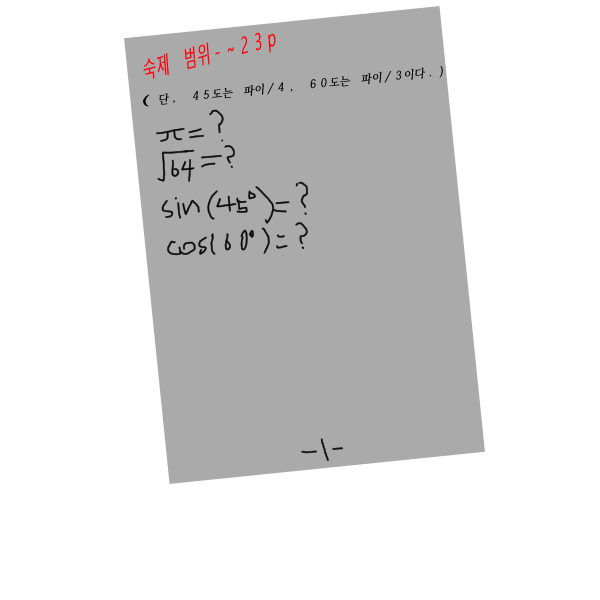 숙제 범위-~23p
(단. 45도는 파이/4, 60도는 파이/3이다.)
π=?
√64=?
sin(45°)=?
cos(60°)=?
-1-